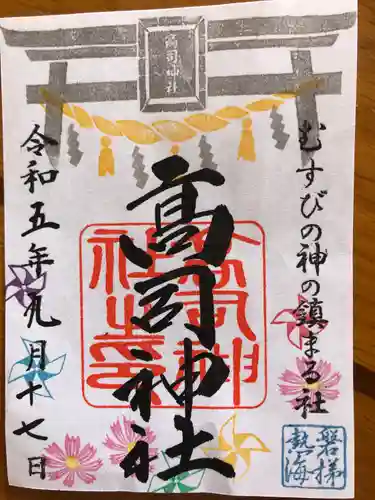 高司神社
むすびの神の鎮まる社
高司神社
令和五年九月十七日
磐梯
熱海